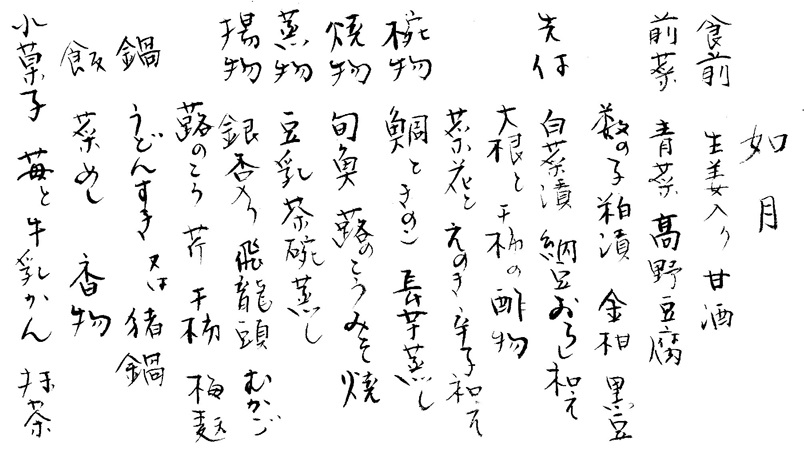 如月
食前 生姜入り甘酒
前菜 青菜高野豆腐
数の子粕漬 金柑 黒豆
先付 白菜漬 納豆おろし和え
大根と干柿の酢物
菜花とえのき辛子和え
椀物 鯛ときのこ 長芋蒸し
焼物 旬魚 蕗のとうみそ焼
蒸物 豆乳茶碗蒸し
揚物 銀杏入り飛龍頭 むかご
蕗のとう 芹 干柿 梅麩
鍋 うどんすき 又は 猪鍋
飯 菜めし 香物
水菓子 苺と牛乳かん 抹茶